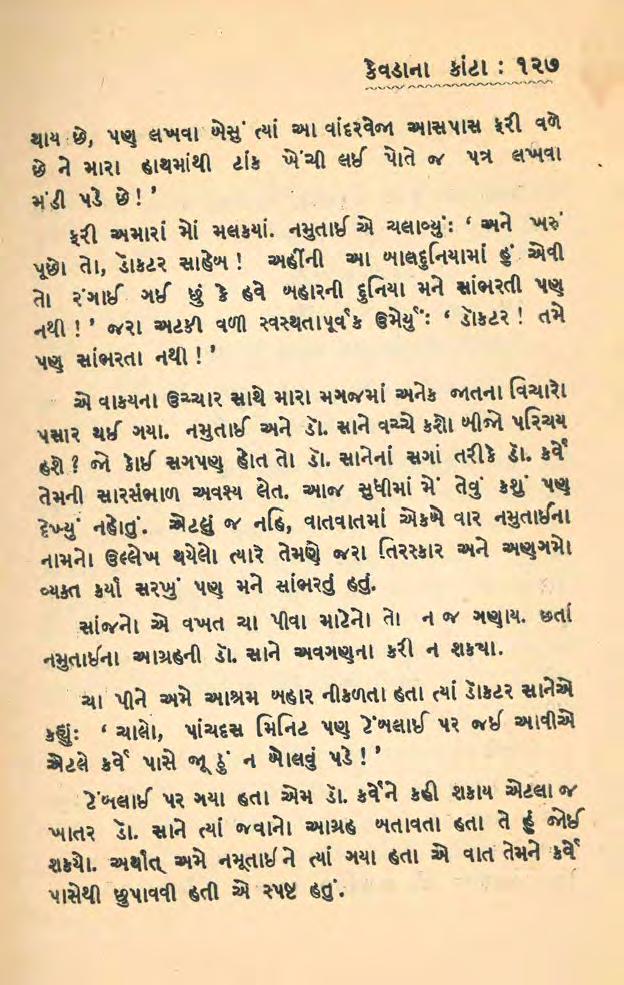 કેવડાના કાંટા : ૧૨૭
થાય છે, પણ લખવા બેસું ત્યાં આ વાંદરવેજા આસપાસ ફરી વળે
છે ને મારા હાથમાંથી ટાંક ખેંચી લઈ પોતે જ પત્ર લખવા
મંડી પડે છે! ’
ફરી અમારાં મોં મલકયાં. નમુતાઈ એ ચલાવ્યું: ‘ અને ખરું
પૂછો તો, ડૉકટર સાહેબ! અહીંની આ બાલદુનિયામાં હું એવી
તો રંગાઈ ગઈ છું કે હવે બહારની દુનિયા મને સાંભરતી પણ
નથી! ’ જરા અટકી વળી સ્વસ્થતાપૂર્વક ઉમેર્યું: ‘ ડૉકટર! તમે
પણ સાંભરતા નથી! ’
એ વાકયના ઉચ્ચાર સાથે મારા મગજમાં અનેક જાતના વિચારો
પસાર થઈ ગયા. નમુતાઈ અને ડૉ. સાને વચ્ચે કશો બીજો પરિચય
હશે? જો કોઈ સગપણ હોત તો ડૉ. સાનેનાં સગાં તરીકે ડૉ. કર્વે
તેમની સારસંભાળ અવશ્ય લેત. આજ સુધીમાં મેં તેવું કશું પણ
દેખ્યું નહોતું. એટલું જ નહિ, વાતવાતમાં એકબે વાર નમુતાઈના
નામનો ઉલ્લેખ થયેલો ત્યારે તેમણે જરા તિરસ્કાર અને અણગમો
વ્યક્ત કર્યા સરખું પણ મને સાંભરતું હતું.
સાંજનો એ વખત ચા પીવા માટેનો તો ન જ ગણાય. છતાં
નમુતાઈના આગ્રહની ડૉ. સાને અવગણના કરી ન શકયા.
ચા પીને અમે આશ્રમ બહાર નીકળતા હતા ત્યાં ડૉકટર સાનેએ
કહ્યું: ‘ ચાલો, પાંચદસ મિનિટ પણ ટેંબલાઈ પર જઈ આવીએ
એટલે કર્વે પાસે જૂઠું ન બોલવું પડે! ’
ટેંબલાઈ પર ગયા હતા એમ ડૉ. કર્વેને કહી શકાય એટલા જ
ખાતર ડૉ. સાને ત્યાં જવાનો આગ્રહ બતાવતા હતા તે હું જોઈ
શકયો. અર્થાત્ અમે નમૂતાઈ ને ત્યાં ગયા હતા એ વાત તેમને કર્વે
પાસેથી છુપાવવી હતી એ સ્પષ્ટ હતું.